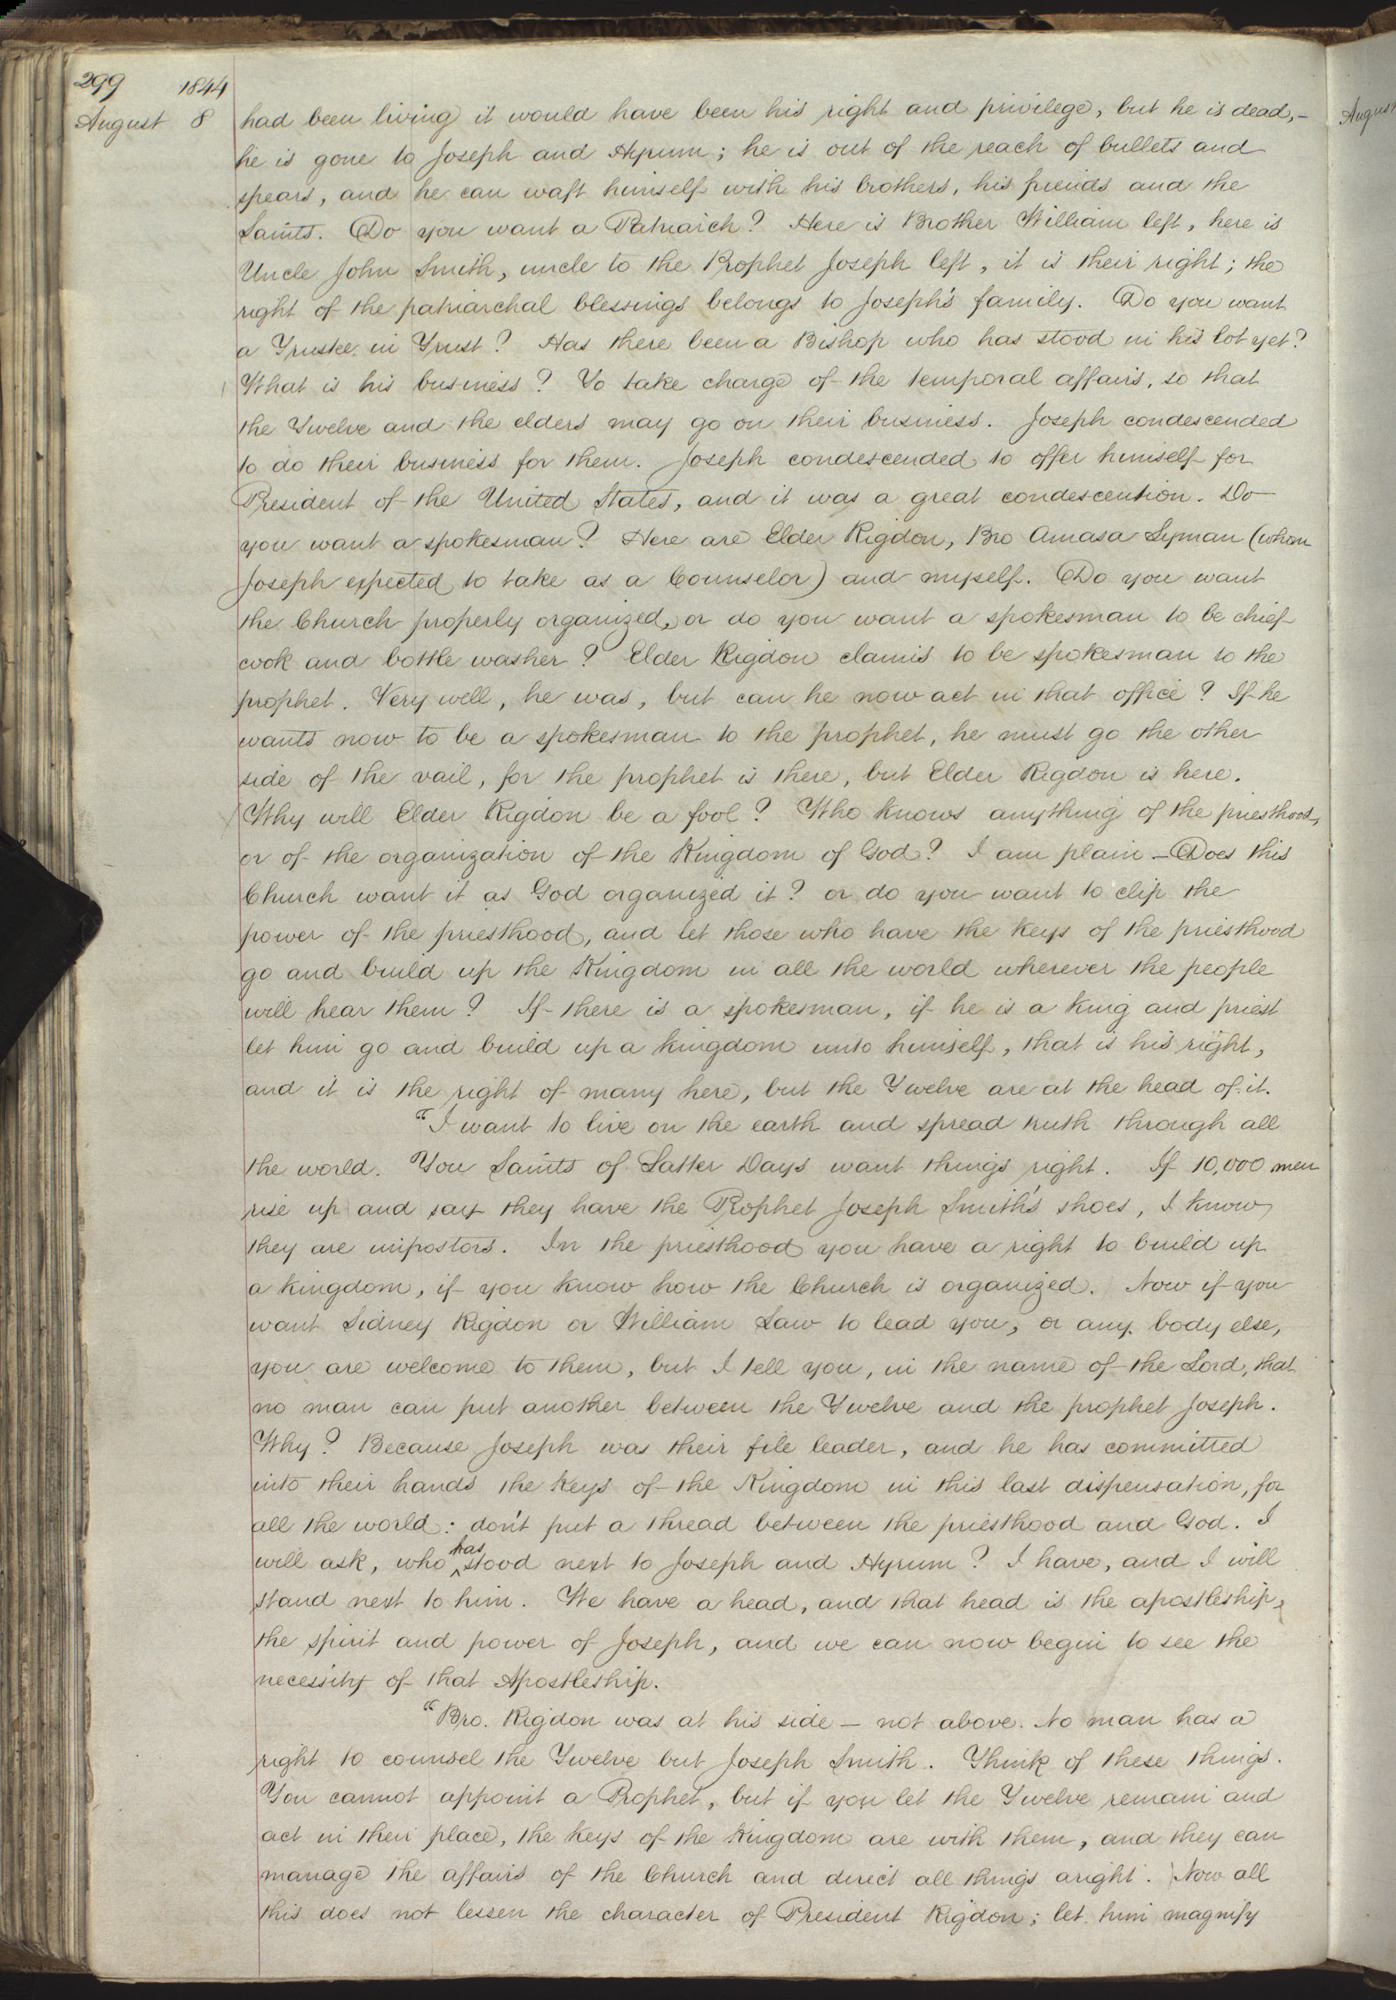 299 1844
August 8
had been living it would have been his right and privilege, but he is dead,–
he is gone to Joseph and Hyrum; he is out of the reach of bullets and
spears, and he can waft himself with his brothers, his friends and the
Saints. Do you want a Patriarch? Here is Brother William left, here is
Uncle John Smith, uncle to the Prophet Joseph left, it is their right; the
right of the patriarchal blessings belongs to Joseph's family. Do you want
a Trustee in Trust? Has there been a Bishop who has stood in his lot yet?
What is his business? To take charge of the temporal affairs, so that
the Twelve and the elders may go on their business. Joseph condescended
to do their business for them. Joseph condescended to offer himself for
President of the United States, and it was a great condescention. Do
you want a spokesman? Here are Elder Rigdon, Bro Amasa Lyman (whom
Joseph expected to take as a Counselor) and myself. Do you want
the Church properly organized, or do you want a spokesman to be chief
cook and bottle washer? Elder Rigdon claims to be spokesman to the
prophet. Very well, he was, but can he now act in that office? If he
wants now to be a spokesman to the prophet, he must go the other
side of the vail, for the prophet is there, but Elder Rigdon is here.
Why will Elder Rigdon be a fool? Who knows anything of the priesthood,
or of the organization of the Kingdom of God? I am plain – Does this
Church want it as God organized it? or do you want to clip the
power of the priesthood, and let those who have the keys of the priesthood
go and build up the Kingdom in all the world wherever the people
will hear them? If there is a spokesman, if he is a King and priest
let him go and build up a kingdom unto himself, that is his right,
and it is the right of many here, but the Twelve are at the head of it.
"I want to live on the earth and spread truth through all
the world. You Saints of Latter Days want things right. If 10,000 men
rise up and say they have the Prophet Joseph Smith's shoes, I know
they are impostors. In the priesthood you have a right to build up
a kingdom, if you know how the Church is organized. Now if you
want Sidney Rigdon or William Law to lead you, or any body else,
you are welcome to them, but I tell you, in the name of the Lord, that
no man can put another between the Twelve and the prophet Joseph.
Why? Because Joseph was their file leader, and he has committed
into their hands the keys of the Kingdom in this last dispensation, for
all the world: don't put a thread between the priesthood and God. I
will ask, who has stood next to Joseph and Hyrum? I have, and I will
stand next to him. We have a head, and that head is the apostleship,
the spirit and power of Joseph, and we can now begin to see the
necessity of that Apostleship.
"Bro. Rigdon was at his side – not above. No man has a
right to counsel the Twelve but Joseph Smith. Think of these things.
You cannot appoint a Prophet, but if you let the Twelve remain and
act in their place, the keys of the Kingdom are with them, and they can
manage the affairs of the Church and direct all things aright. Now all
this does not lessen the character of President Rigdon; let him magnify
August